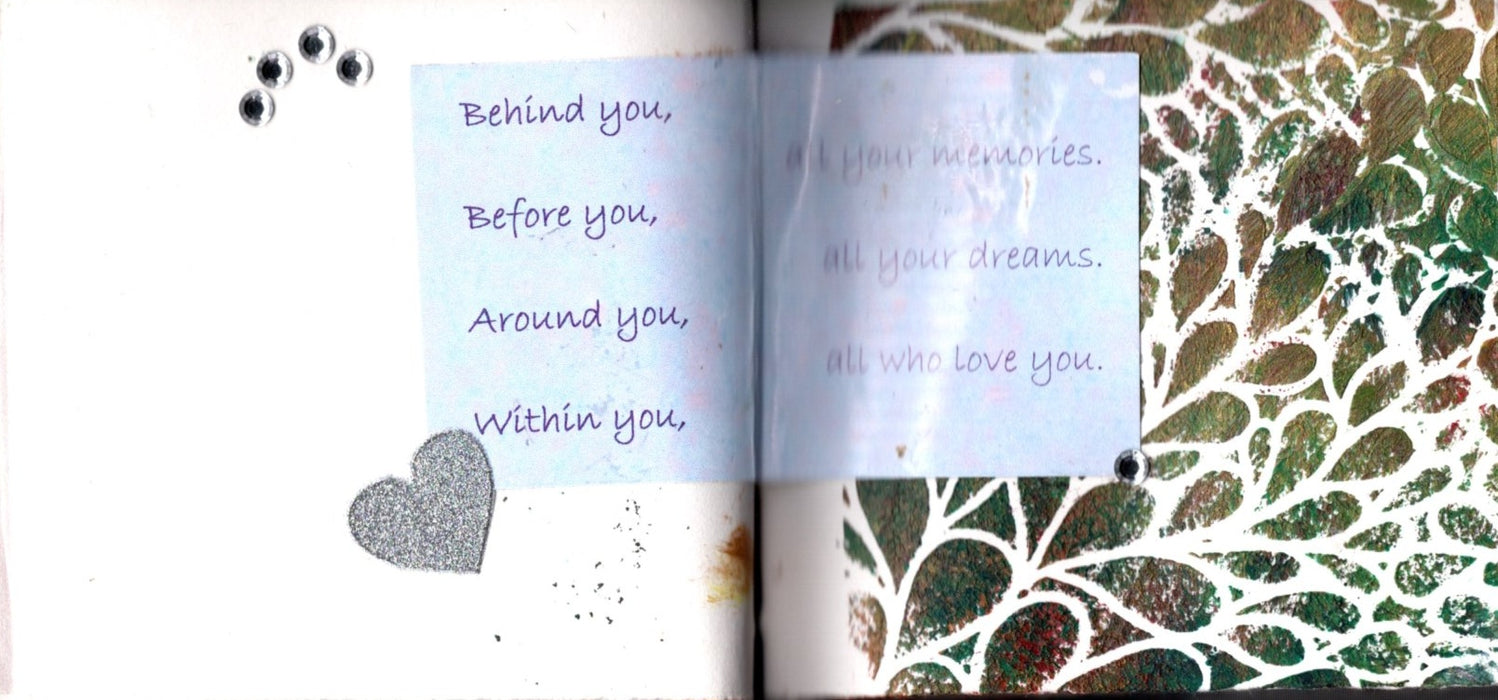 Behind you,
all your memories.
Before you,
all your dreams.
Around you,
all who love you.
Within you,